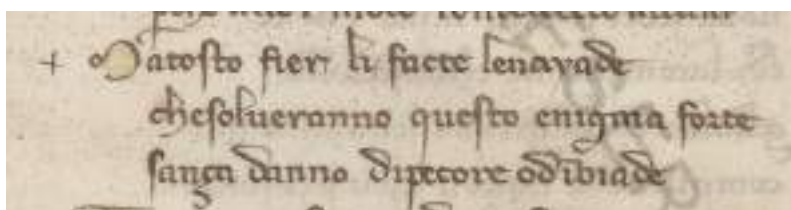 + Matosto fier li facte lenayade
chesolueranno questo enigma forte
sança danno dipecore odibiade